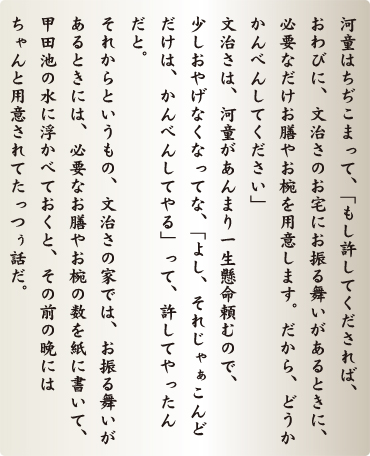 河童はちぢこまって、「もし許してくだされば、
おわびに、文治さのお宅にお振る舞いがあるときに、
必要なだけお膳やお椀を用意します。だから、どうか
かんべんしてください」
文治さは、河童があんまり一生懸命頼むので、
少しおやげなくなってな、「よし、それじゃぁこんど
だけは、かんべんしてやる」って、許してやったん
だと。
それからというもの、文治さの家では、お振る舞いが
あるときには、必要なお膳やお椀の数を紙に書いて、
甲田池の水に浮かべておくと、その前の晩には
ちゃんと用意されてたっつぅ話だ。